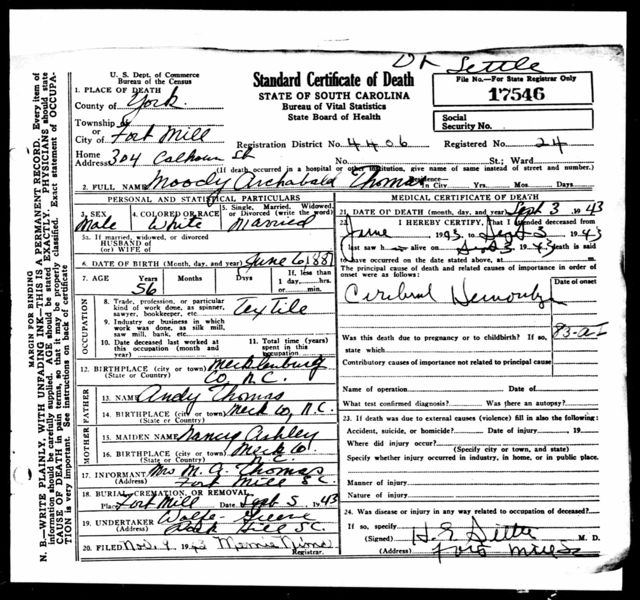 Dr Settle
U. S. Dept. of Commerce
Bureau of the Census
Standard Certificate of Death
STATE OF SOUTH CAROLINA
Bureau of Vital Statistics
State Board of Health
File No.—For State Registrar Only
17546
Social
Security No.
1. PLACE OF DEATH
County of York
Township of
or
City of Fort Mill
Registration District No. 4406 Registered No. 24
Home Address 304 Calhoun St No. St.; Ward
(If death occurred in a hospital or other institution, give name of same instead of street and number.)
2. FULL NAME Moody Archabald Thomas Residence In City Yrs. Mos. Days
PERSONAL AND STATISTICAL PARTICULARS
3. SEX Male
4. COLORED OR RACE White
5. Single, Married, Widowed, or Divorced (write the word) Married
5a. If married, widowed, or divorced
HUSBAND of
(or) WIFE of
6. DATE OF BIRTH (Month, day, and year) June 6 1887
7. AGE Years 56 Months Days If, less than 1 day, hrs. or min.
OCCUPATION
8. Trade, profession, or particular kind of work done, as spinner, sawyer, bookkeeper, etc. Textile
9. Industry or business in which work was done, as silk mill, saw mill, bank, etc.
10. Date deceased last worked at this occupation (month and year)
11. Total time (years) spent in this occupation
12. BIRTHPLACE (city or town) Mecklenburg
(State or Country) Co, N.C.
FATHER
13. NAME Andy Thomas
14. BIRTHPLACE (city or town) Meck Co, N.C.
(State or Country)
MOTHER
15. MAIDEN NAME Nancy Ashley
16. BIRTHPLACE (city or town) Meck Co.
(State or Country)
17. INFORMANT Mrs M. A. Thomas
(Address) Fort Mill S.C.
18. BURIAL, CREMATION, OR REMOVAL
Place Fort Mill Sept 5 1943
19. UNDERTAKER Wolfe
(Address) Rock Hill S.C.
20. FILED Nov. 9 1943 Registrar.
MEDICAL CERTIFICATE OF DEATH
21. DATE OF DEATH (month, day, and year) Sept 3 1943
22. I HEREBY CERTIFY, That I attended deceased from
June 1943, to Sept 3 1943
I last saw h alive on 3 1943 death is said
to have occurred on the date stated above, at m.
The principal cause of death and related causes of importance in order of onset were as follows:
Date of onset
Cerebral Hemorrhage
83-a-1
Was this death due to pregnancy or to childbirth? If so,
state which
Contributory causes of importance not related to principal cause
Name of operation Date of
What test confirmed diagnosis? Was there an autopsy?
23. If death was due to external causes (violence) fill in also the following:
Accident, suicide, or homicide? Date of injury , 19
Where did injury occur?
(Specify city or town, and state)
Specify whether injury occurred in industry, in home, or in public place.
Manner of injury
Nature of injury
24. Was disease or injury in any way related to occupation of deceased?
If so, specify
(Signed) M. D.
(Address) Fort Mill S.C.
MARGIN FOR BINDING
N. B.—WRITE PLAINLY, WITH UNFADING INK—THIS IS A PERMANENT RECORD. Every item of
information should be carefully supplied. AGE should be stated EXACTLY. PHYSICIANS should state
CAUSE OF DEATH in plain terms, so that it may be properly classified. Exact statement of OCCUPA-
TION is very important. See instructions on back of certificate